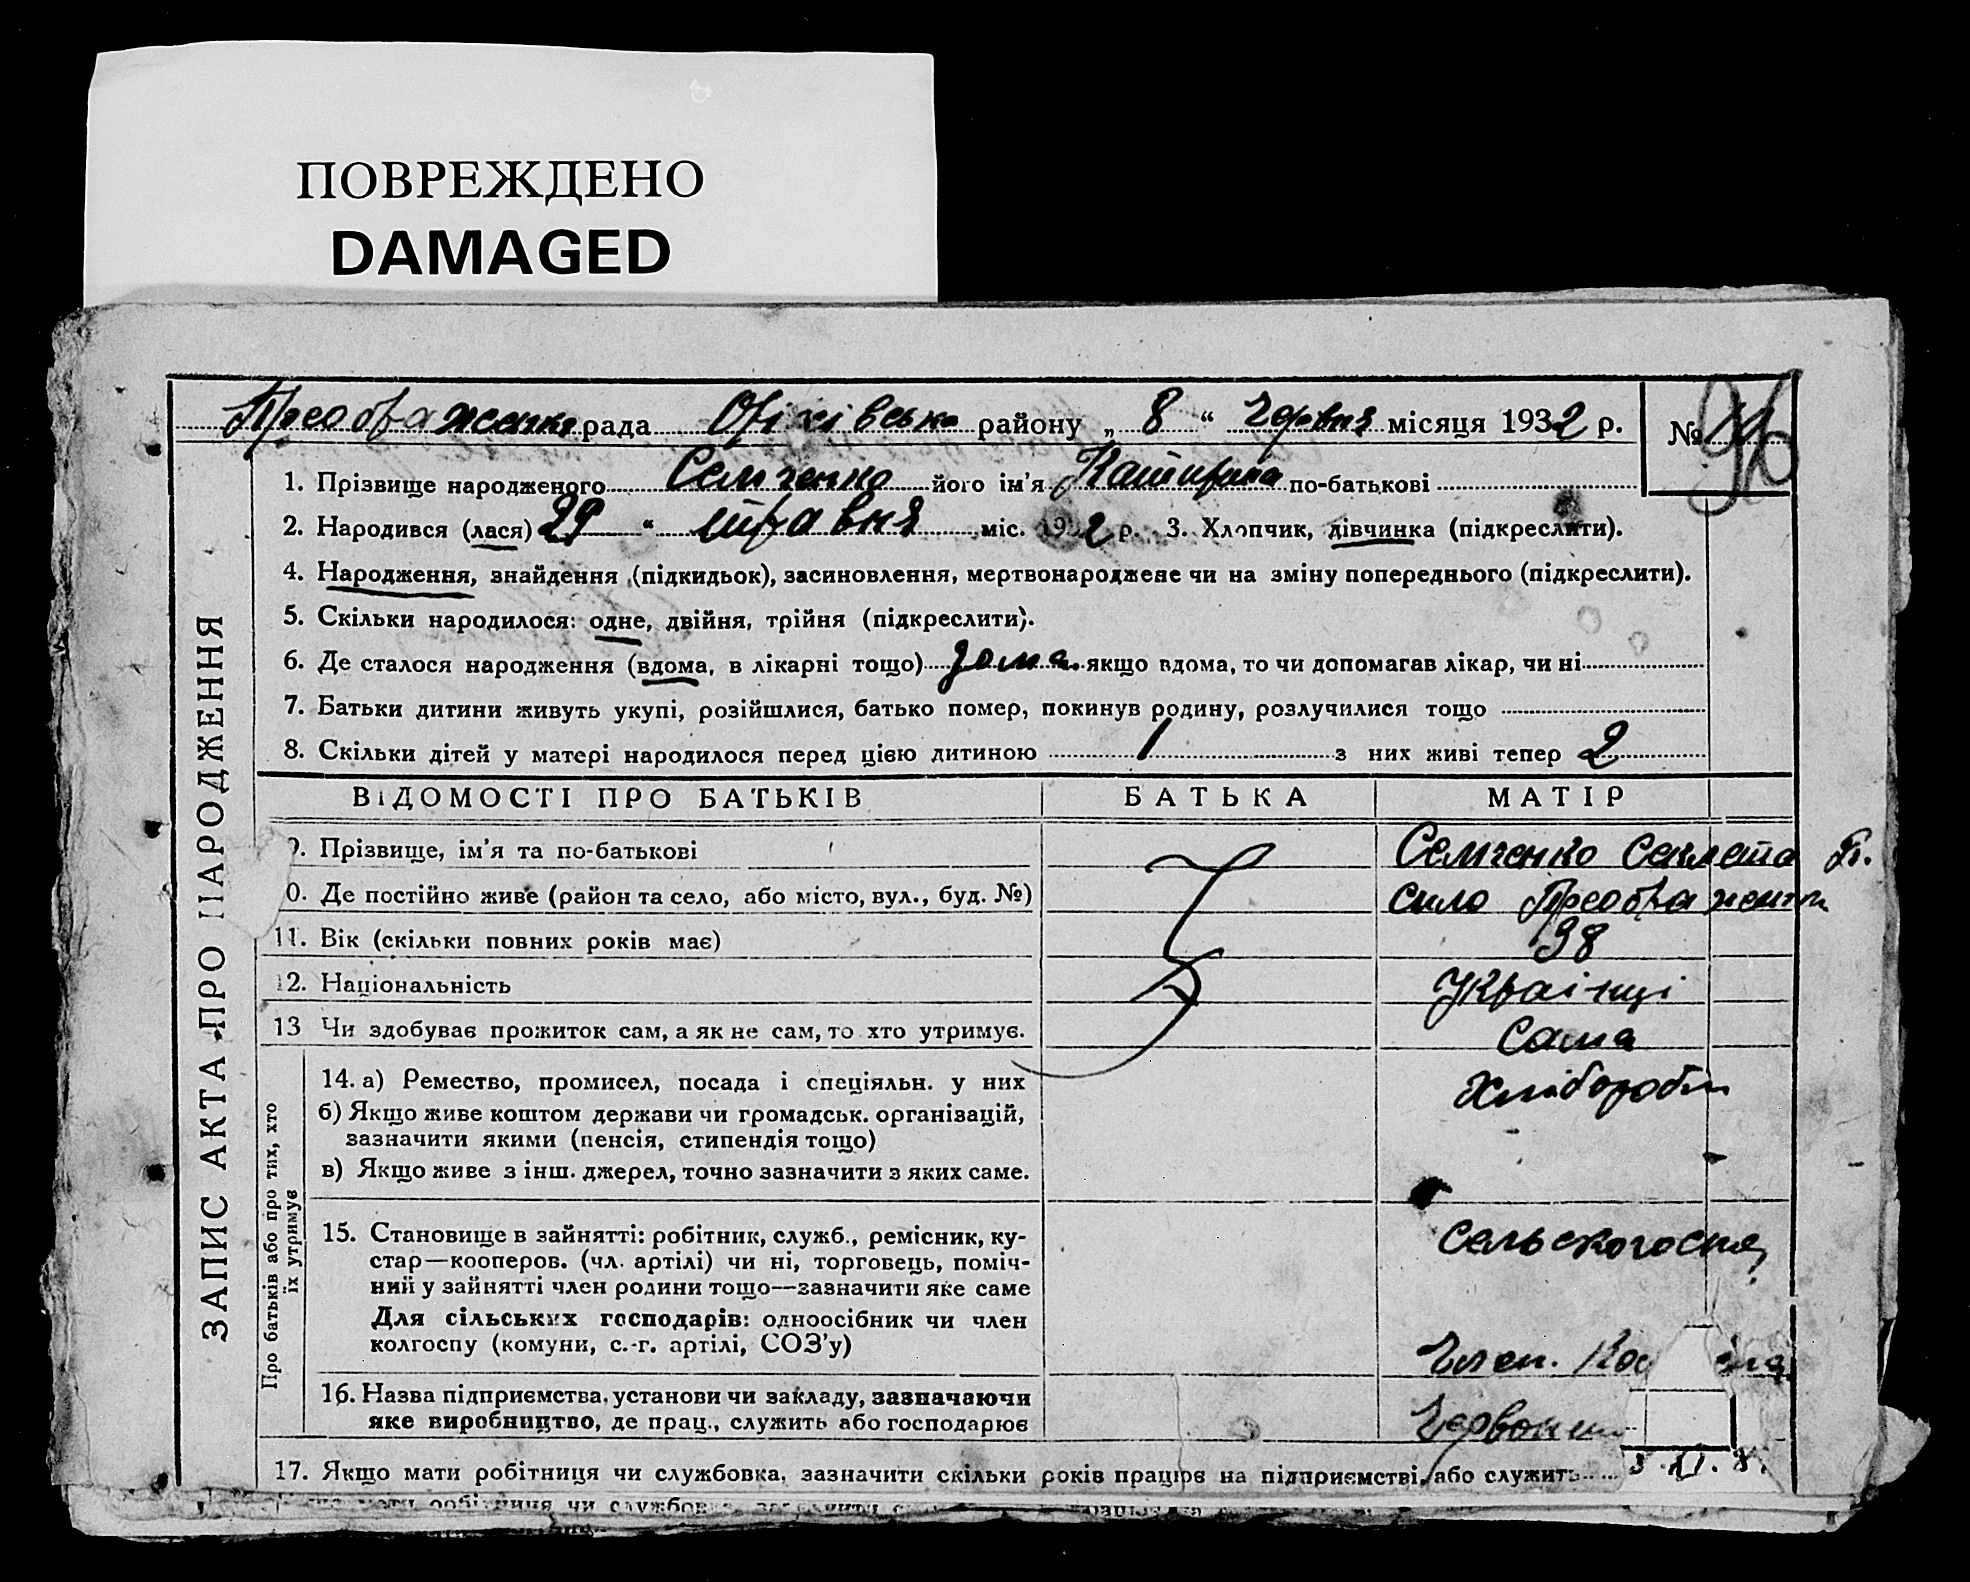 ПОВРЕЖДЕНО
DAMAGED
Преображенка рада Оріхівсько району „ 8 “ Червня місяця 1932 р. № 96
1. Прізвище народженого Семченко його ім’я Катирина по-батькові
2. Народився (лася) 29 “ травня міс. 1932 р. 3. Хлопчик, дівчинка (підкреслити).
4. Народження, знайдення (підкидьок), засиновлення, мертвонароджене чи на зміну попереднього (підкреслити).
5. Скільки народилося: одне, двійня, трійня (підкреслити).
6. Де сталося народження (вдома, в лікарні тощо) дома якщо вдома, то чи допомагав лікар, чи ні
7. Батьки дитини живуть укупі, розійшлися, батько помер, покинув родину, розлучилися тощо
8. Скільки дітей у матері народилося перед цією дитиною 1 з них живі тепер 2
ЗАПИС АКТА ПРО НАРОДЖЕННЯ
ВІДОМОСТІ ПРО БАТЬКІВ БАТЬКА МАТІР
9. Прізвище, ім’я та по-батькові Семченко Секлета П.
10. Де постійно живе (район та село, або місто, вул., буд. №) село Преображенка
11. Вік (скільки повних років має) 38
12. Національність Українці
13 Чи здобуває прожиток сам, а як не сам, то хто утримує. Сама
Про батьків або про тих, хто
їх утримує
14. а) Ремество, промисел, посада і спеціяльн. у них Хлібороби
б) Якщо живе коштом держави чи громадськ. організацій,
зазначити якими (пенсія, стипендія тощо)
в) Якщо живе з інш. джерел, точно зазначити з яких саме.
15. Становище в зайнятті: робітник, служб., ремісник, ку-
стар—кооперов. (чл. артілі) чи ні, торговець, поміч-
ний у зайнятті член родини тощо—зазначити яке саме
Для сільських господарів: одноосібник чи член
колгоспу (комуни, с.-г. артілі, СОЗ’у) Член.
16. Назва підприємства, установи чи закладу, зазначаючи
яке виробництво, де прац., служить або господарює
17. Якщо мати робітниця чи службовка, зазначити скільки років працює на підприємстві, або служить